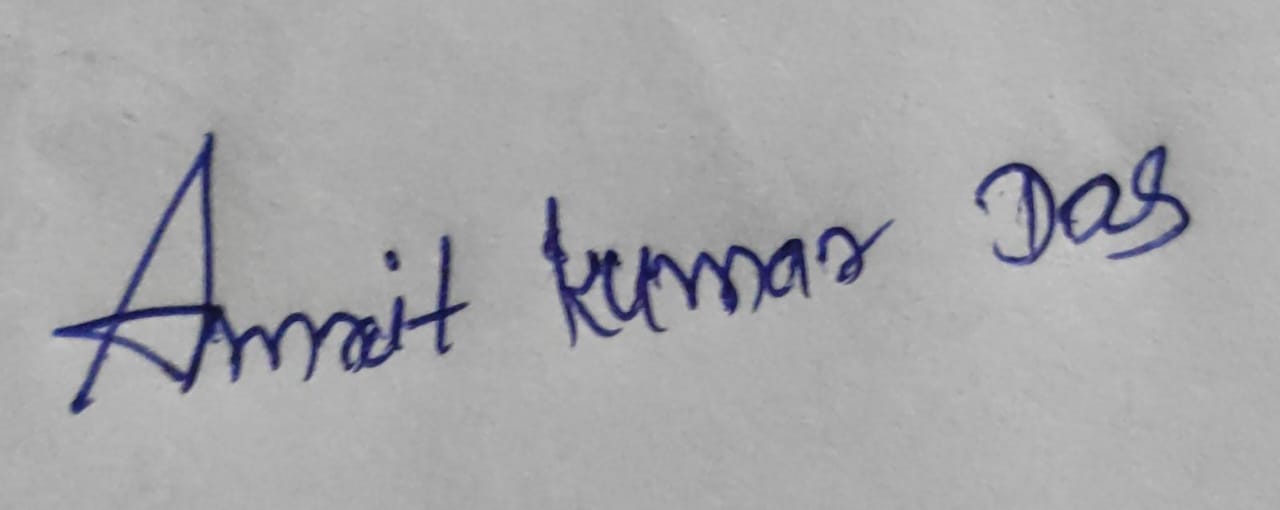 Amrit Kumar Das